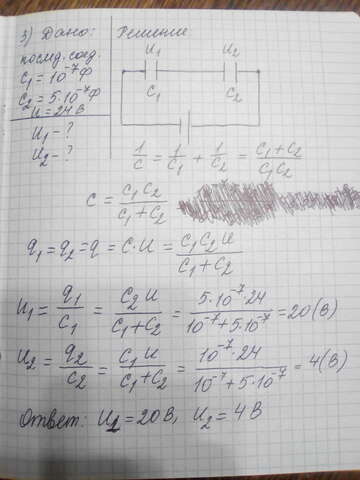 3) Дано: Решение
послед. соед.
C₁ = 10⁻⁷ Ф
C₂ = 5·10⁻⁷ Ф
U = 24 В
U₁ – ?
U₂ – ?
U₁ U₂
C₁ C₂
1/C = 1/C₁ + 1/C₂ = (C₁ + C₂)/(C₁C₂)
C = C₁C₂/(C₁ + C₂)
q₁ = q₂ = q = C·U = C₁C₂U/(C₁ + C₂)
U₁ = q₁/C₁ = C₂U/(C₁ + C₂) = 5·10⁻⁷·24/(10⁻⁷ + 5·10⁻⁷) = 20 (В)
U₂ = q₂/C₂ = C₁U/(C₁ + C₂) = 10⁻⁷·24/(10⁻⁷ + 5·10⁻⁷) = 4 (В)
Ответ: U₁ = 20 В, U₂ = 4 В